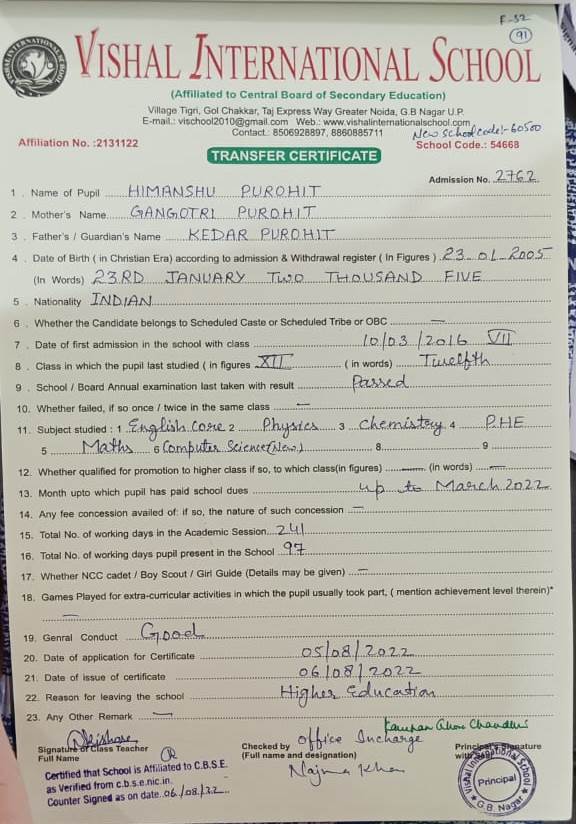 F-52
91
VISHAL INTERNATIONAL SCHOOL
(Affiliated to Central Board of Secondary Education)
Village Tigri, Gol Chakkar, Taj Express Way Greater Noida, G.B Nagar U.P.
E-mail.: vischool2010@gmail.com Web.: www.vishalinternationalschool.com
Contact.: 8506928897, 8860885711
New School Code:- 60500
Affiliation No. :2131122 School Code.: 54668
TRANSFER CERTIFICATE
Admission No. 2762
1 . Name of Pupil HIMANSHU PUROHIT
2 . Mother's Name GANGOTRI PUROHIT
3 . Father's / Guardian's Name KEDAR PUROHIT
4 . Date of Birth ( in Christian Era) according to admission & Withdrawal register ( In Figures ) 23-01-2005
(In Words) 23RD JANUARY TWO THOUSAND FIVE
5 . Nationality INDIAN
6 . Whether the Candidate belongs to Scheduled Caste or Scheduled Tribe or OBC —
7 . Date of first admission in the school with class 10/03/2016 VII
8 . Class in which the pupil last studied ( in figures XII ( in words) Twelfth
9 . School / Board Annual examination last taken with result Passed
10. Whether failed, if so once / twice in the same class —
11. Subject studied : 1 English Core 2 Physics 3 Chemistery 4 P.HE
5 Maths 6 Computer Science(New) 8 9
12. Whether qualified for promotion to higher class if so, to which class(in figures) — (in words) —
13. Month upto which pupil has paid school dues up to March 2022
14. Any fee concession availed of: if so, the nature of such concession —
15. Total No. of working days in the Academic Session 241
16. Total No. of working days pupil present in the School 97
17. Whether NCC cadet / Boy Scout / Girl Guide (Details may be given) —
18. Games Played for extra-curricular activities in which the pupil usually took part, ( mention achievement level therein)*
—
19. Genral Conduct Good
20. Date of application for Certificate 05/08/2022
21. Date of issue of certificate 06/08/2022
22. Reason for leaving the school Higher Education
23. Any Other Remark —
Signature of Class Teacher
Full Name
Checked by office Incharge
(Full name and designation) Najma Khan
Principal's Signature
with
Certified that School is Affiliated to C.B.S.E.
as Verified from c.b.s.e.nic.in.
Counter Signed as on date 06/08/22
Vishal International School
Principal
G.B. Nagar